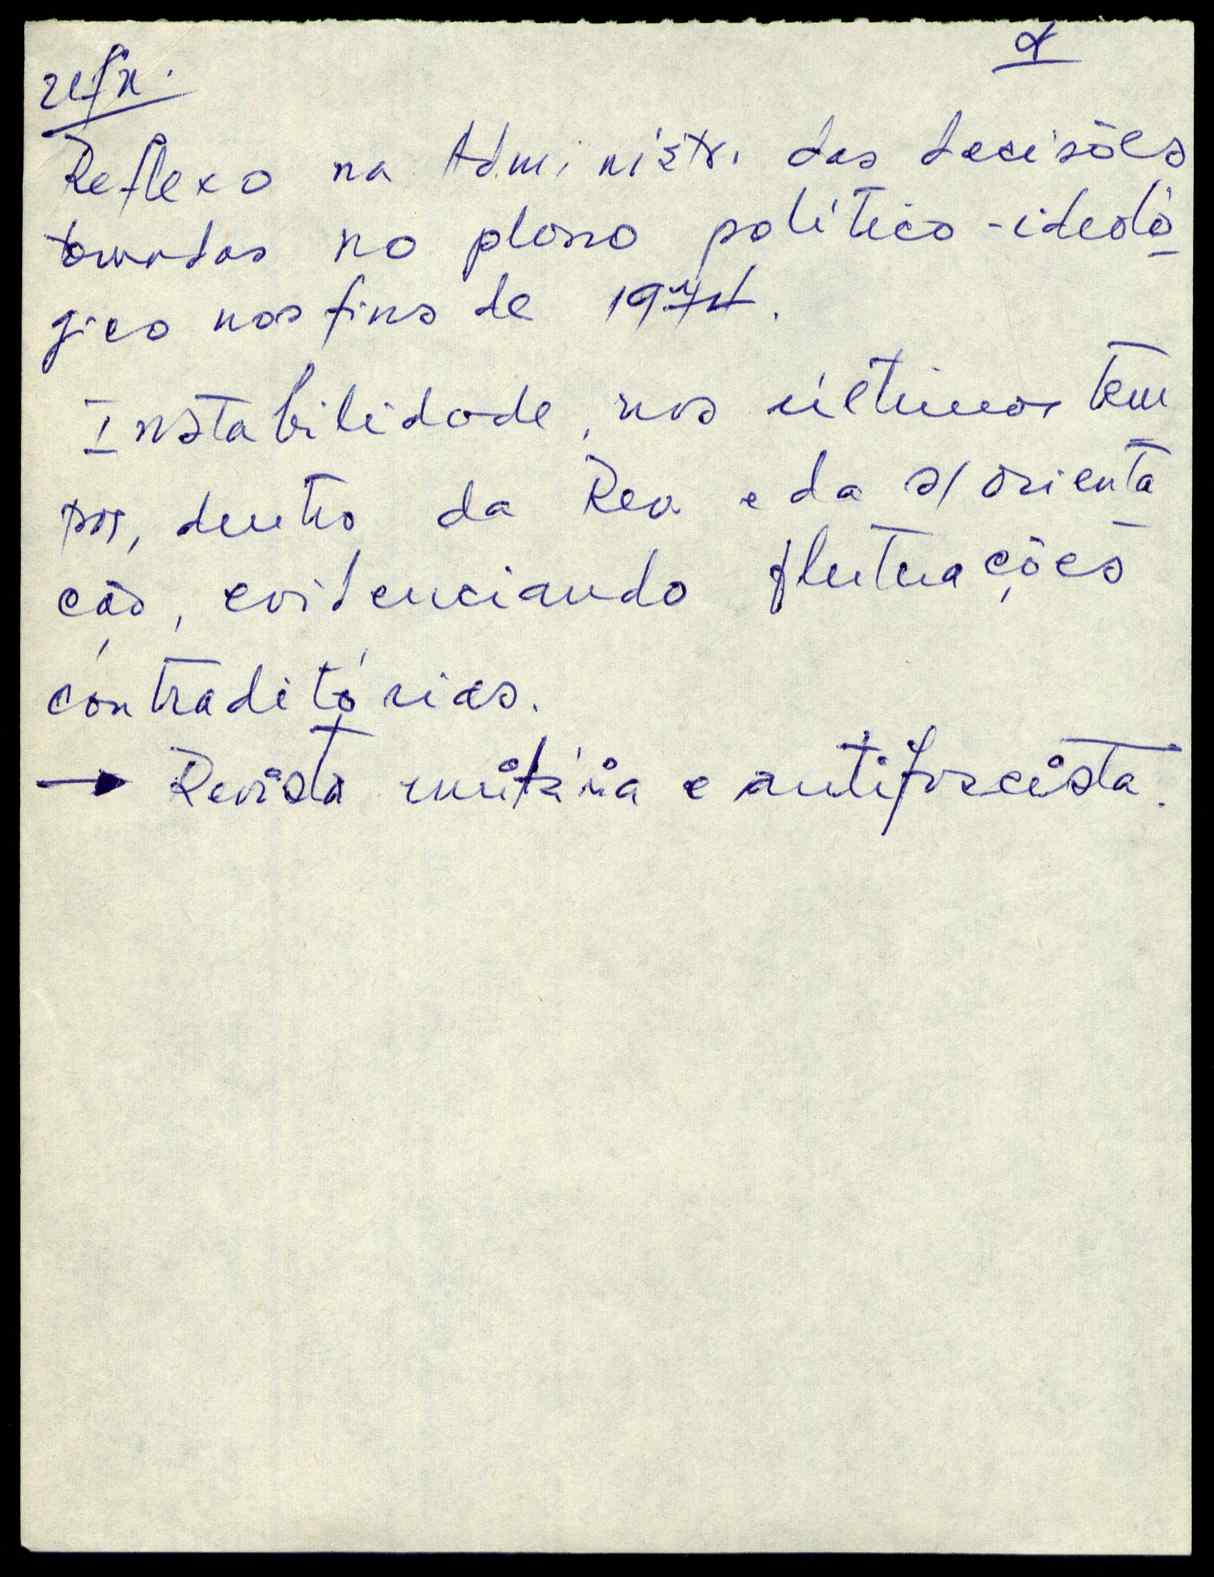 α
refx.
Reflexo na Administr. das decisões
tomadas no plano político-ideoló
gico nos fins de 1974.
Instabilidade, nos últimos tem
pos, dentro da Rev. e da s/ orienta
ção, evidenciando flutuações
contraditórias.
→ Revista unitária e antifascista.